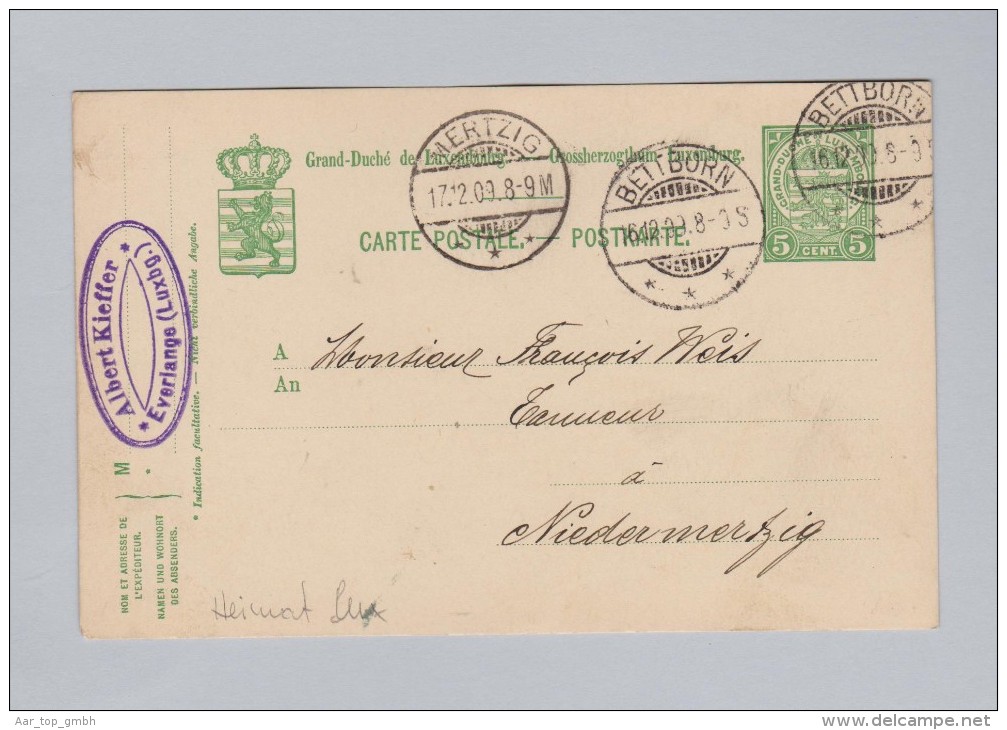 Grand-Duché de Luxembourg. — Grossherzogthum Luxemburg.
CARTE POSTALE. — POSTKARTE.
MERTZIG
17.12.09.8-9M
BETTBORN
16.12.09.8-9S
BETTBORN
16.12.09.8-9
GRAND-DUCHÉ DE LUXEMBOURG
5 CENT. 5
Albert Kieffer
Everlange (Luxbg.)
A Monsieur François Weis
An
Tanneur
à
Niedermertzig
M
* Indication facultative. — Nicht verbindliche Angabe.
NOM ET ADRESSE DE
L'EXPÉDITEUR.
NAMEN UND WOHNORT
DES ABSENDERS.
Heimat Lux
Aar_top_gmbh
delcampe.net